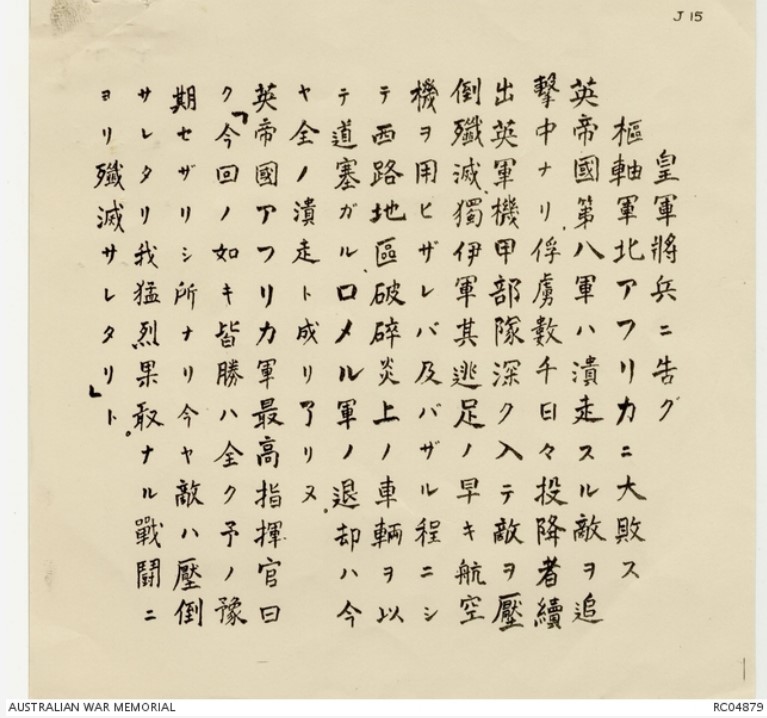 J 15
皇軍將兵ニ告グ
樞軸軍北アフリカニ大敗ス
英帝國第八軍ハ潰走スル敵ヲ追
擊中ナリ、俘虜數千日々投降者續
出英軍機甲部隊深ク入テ敵ヲ壓
倒殲滅、獨伊軍其逃足ノ早キ航空
機ヲ用ヒザレバ及バザル程ニシ
テ西路地區破碎炎上ノ車輛ヲ以
テ道塞ガル、ロメル軍ノ退却ハ今
ヤ全ノ潰走ト成リ了リヌ。
英帝國アフリカ軍最高指揮官曰
ク「今回ノ如キ皆勝ハ全ク予ノ豫
期セザリシ所ナリ今ヤ敵ハ壓倒
サレタリ我猛烈果敢ナル戰鬪ニ
ヨリ殲滅サレタリ」ト。
AUSTRALIAN WAR MEMORIAL
RC04879